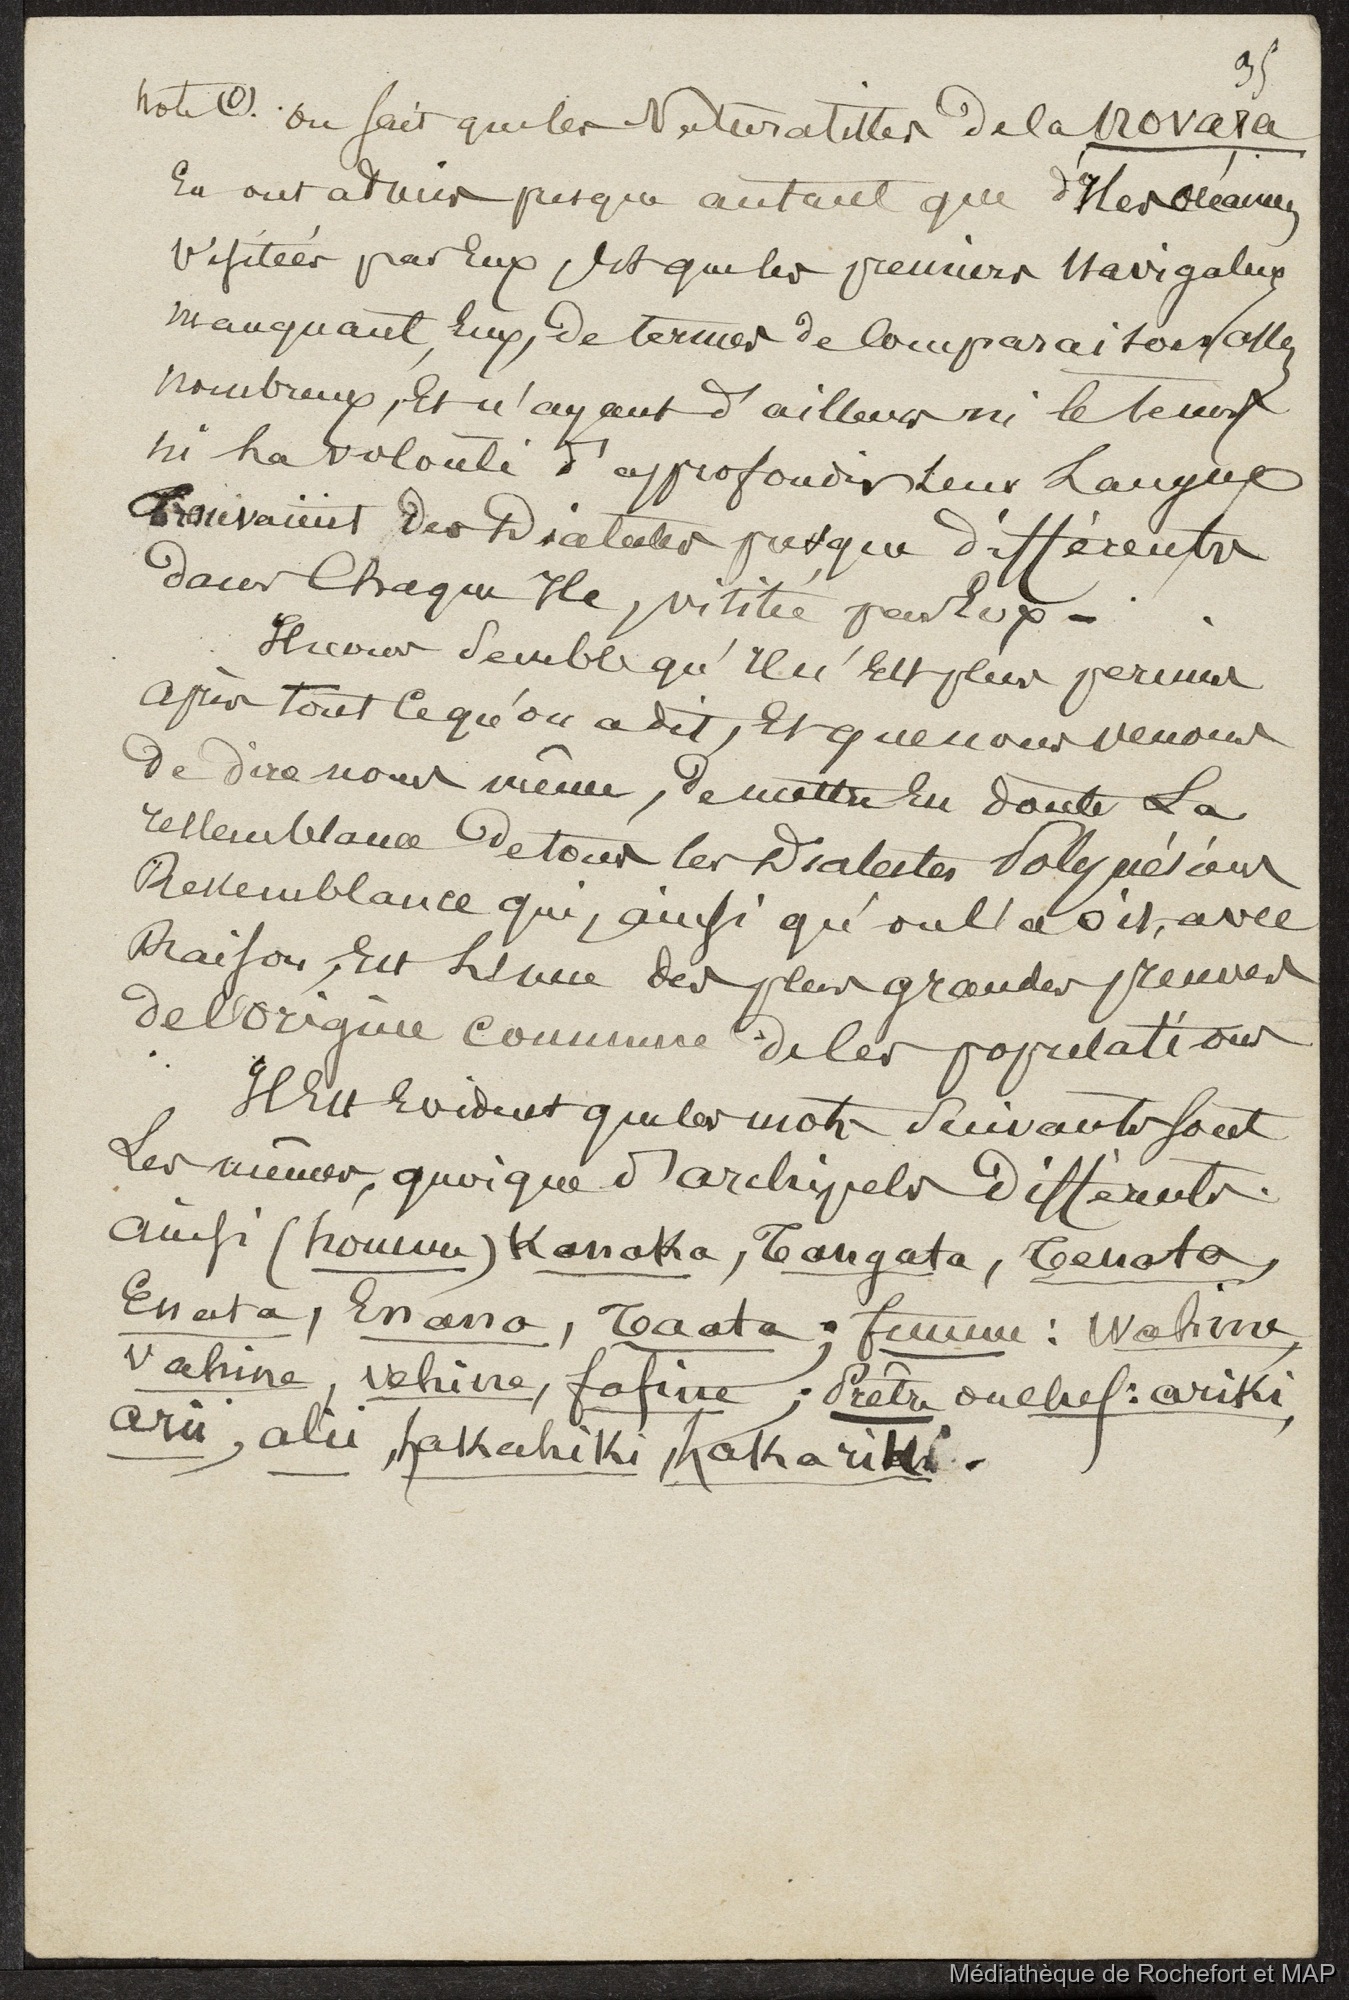 35
note (1). on sait que les Naturalistes de la Novara
En ont admis presque autant que d'Iles océanes
Visitées par Eux, Et que les premiers Navigateurs
manquant, Eux, De termes de Comparaison assez
nombreux, Et n'ayant d'ailleurs ni le tems
ni la volonté d'approfondir leur Langue
trouvaient des Dialectes presque différents
dans Chaque Ile, visitée par Eux -
Il nous semble qu'Il n'Est plus permis
après tout ce qu'on a dit, Et que nous venons
De dire nous même, De mettre En doute La
ressemblance De tous les Dialectes Polynésiens
Ressemblance qui, ainsi qu'on l'a dit, avec
Raison, Est L'une des plus grandes preuves
De l'origine commune de les populations
Il Est Evident que les mots Suivants sont
Les mêmes, quoique d'archipels Différents.
ainsi (homme) Kanaka, Tangata, Tenata,
Enata, Enana, Taata ; femme : Wahine,
vahine, vehine, fafine ; Prêtre ou chef : ariki,
arii, alii, hakahiki, hakariki.
Médiathèque de Rochefort et MAP